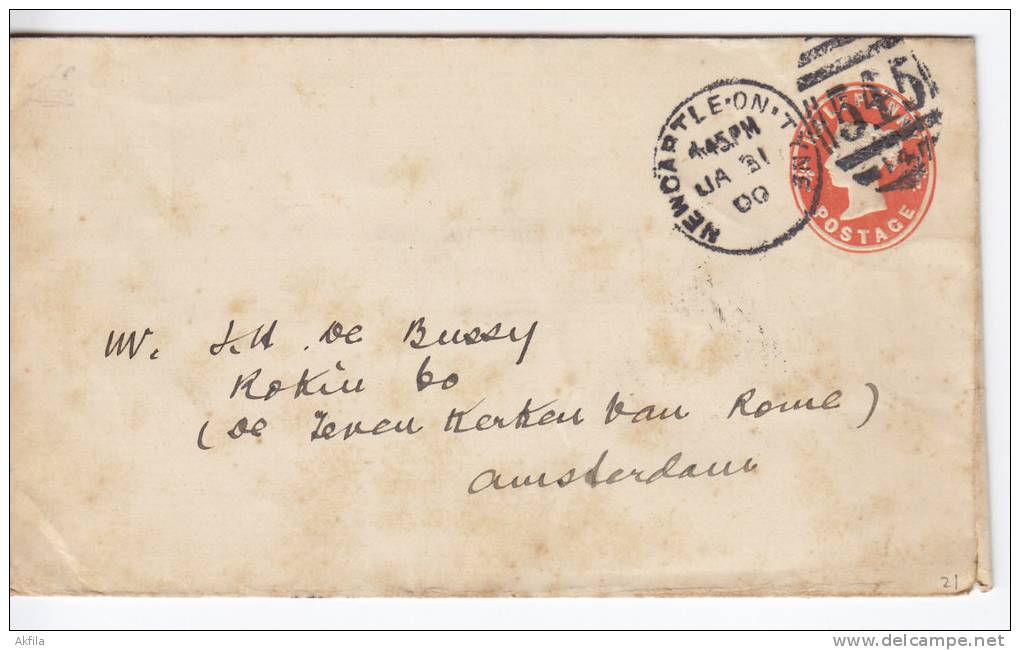 NEWCARTLE·ON·TYNE
4.45PM
JA 31
00
545
HALFPENNY
POSTAGE
Mr. J. H. De Bussy
Rokin 60
(De Zeven Kerken Van Rome)
Amsterdam
21
Akfila
delcampe.net